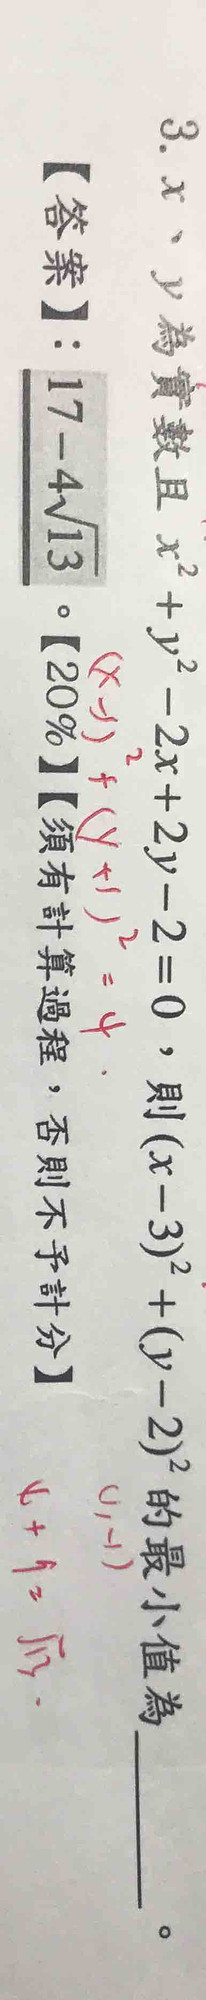 3. x、y 為實數且 x² + y² − 2x + 2y − 2 = 0，則 (x − 3)² + (y − 2)² 的最小值為______。
(x-1)² + (y+1)² = 4.
(1,-1)
【答案】：17 − 4√13。【20%】【須有計算過程，否則不予計分】
4 + 9 = √13.